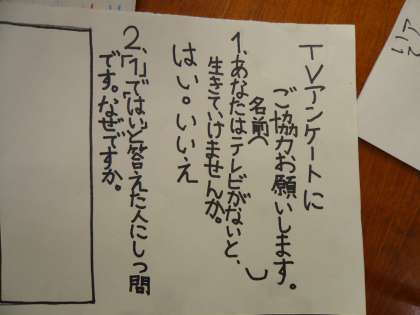 TVアンケートに
ご協力お願いします。
名前( )
1.あなたはテレビがないと、
生きていけませんか。
はい。いいえ
2.「1」で「はい」と答えた人にしつ問
です。なぜですか。